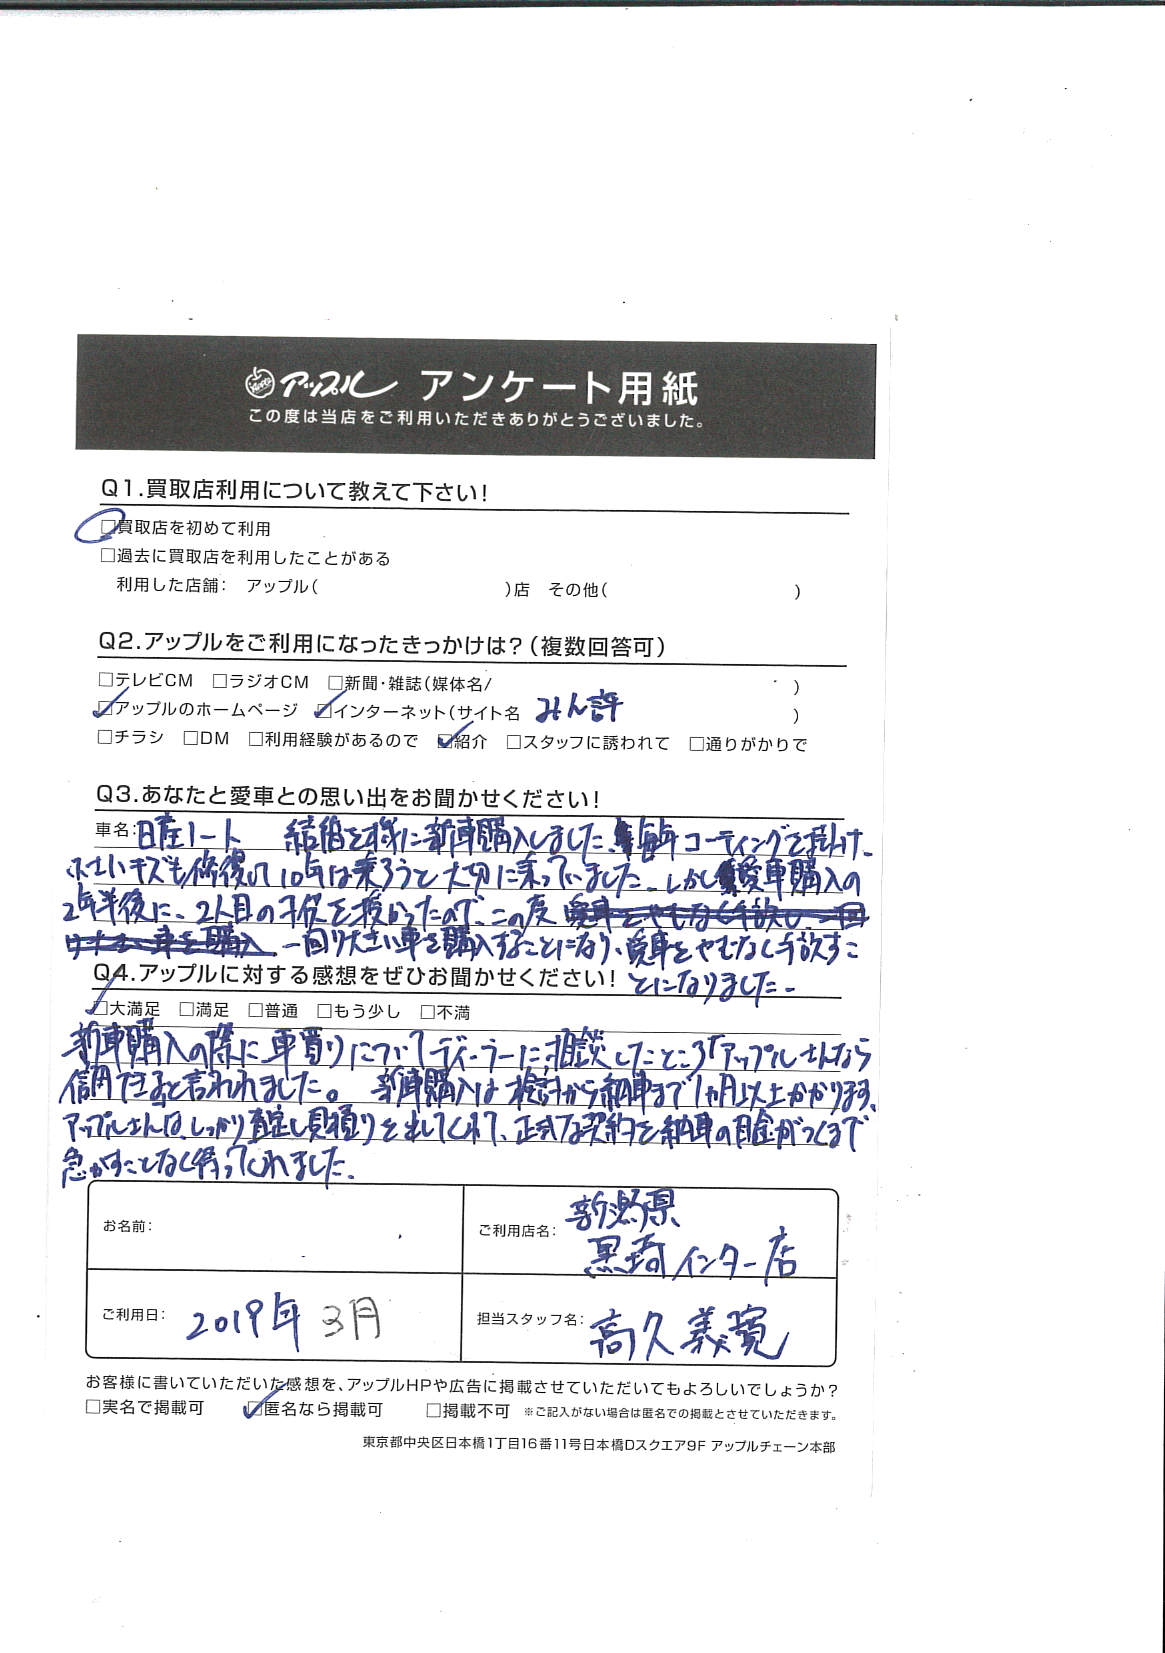 アップル アンケート用紙
この度は当店をご利用いただきありがとうございました。
Q1.買取店利用について教えて下さい!
□買取店を初めて利用
□過去に買取店を利用したことがある
利用した店舗: アップル( )店 その他( )
Q2.アップルをご利用になったきっかけは?(複数回答可)
□テレビCM □ラジオCM □新聞・雑誌(媒体名/ )
☑アップルのホームページ ☑インターネット(サイト名 みん評 )
□チラシ □DM □利用経験があるので ☑紹介 □スタッフに誘われて □通りがかりで
Q3.あなたと愛車との思い出をお聞かせください!
車名: 日産ノート 結婚を機に新車購入しました。毎年コーティングを掛け、
小さいキズも修復して10年は乗ろうと大切に乗っていました。しかし愛車購入の
2年半後に、2人目の子供を授かったので、この度愛車をやむなく手放し、一回
り大きい車を購入 一回り大きい車を購入することになり、愛車をやむなく手放すこ
とになりました。
Q4.アップルに対する感想をぜひお聞かせください!
☑大満足 □満足 □普通 □もう少し □不満
新車購入の際に車買取りについてディーラーに相談したところ「アップルさんなら
信用できると言われました。 新車購入は検討から納車まで1ヵ月以上かかります。
アップルさんは、しっかり査定し見積りを出してくれて、正式な契約を納車の目途がつくまで
急かすことなく待ってくれました。
お名前:
ご利用店名: 新潟県
黒埼インター店
ご利用日: 2019年 3月
担当スタッフ名: 高久義寛
お客様に書いていただいた感想を、アップルHPや広告に掲載させていただいてもよろしいでしょうか?
□実名で掲載可 ☑匿名なら掲載可 □掲載不可 ※ご記入がない場合は匿名での掲載とさせていただきます。
東京都中央区日本橋1丁目16番11号日本橋Dスクエア9F アップルチェーン本部